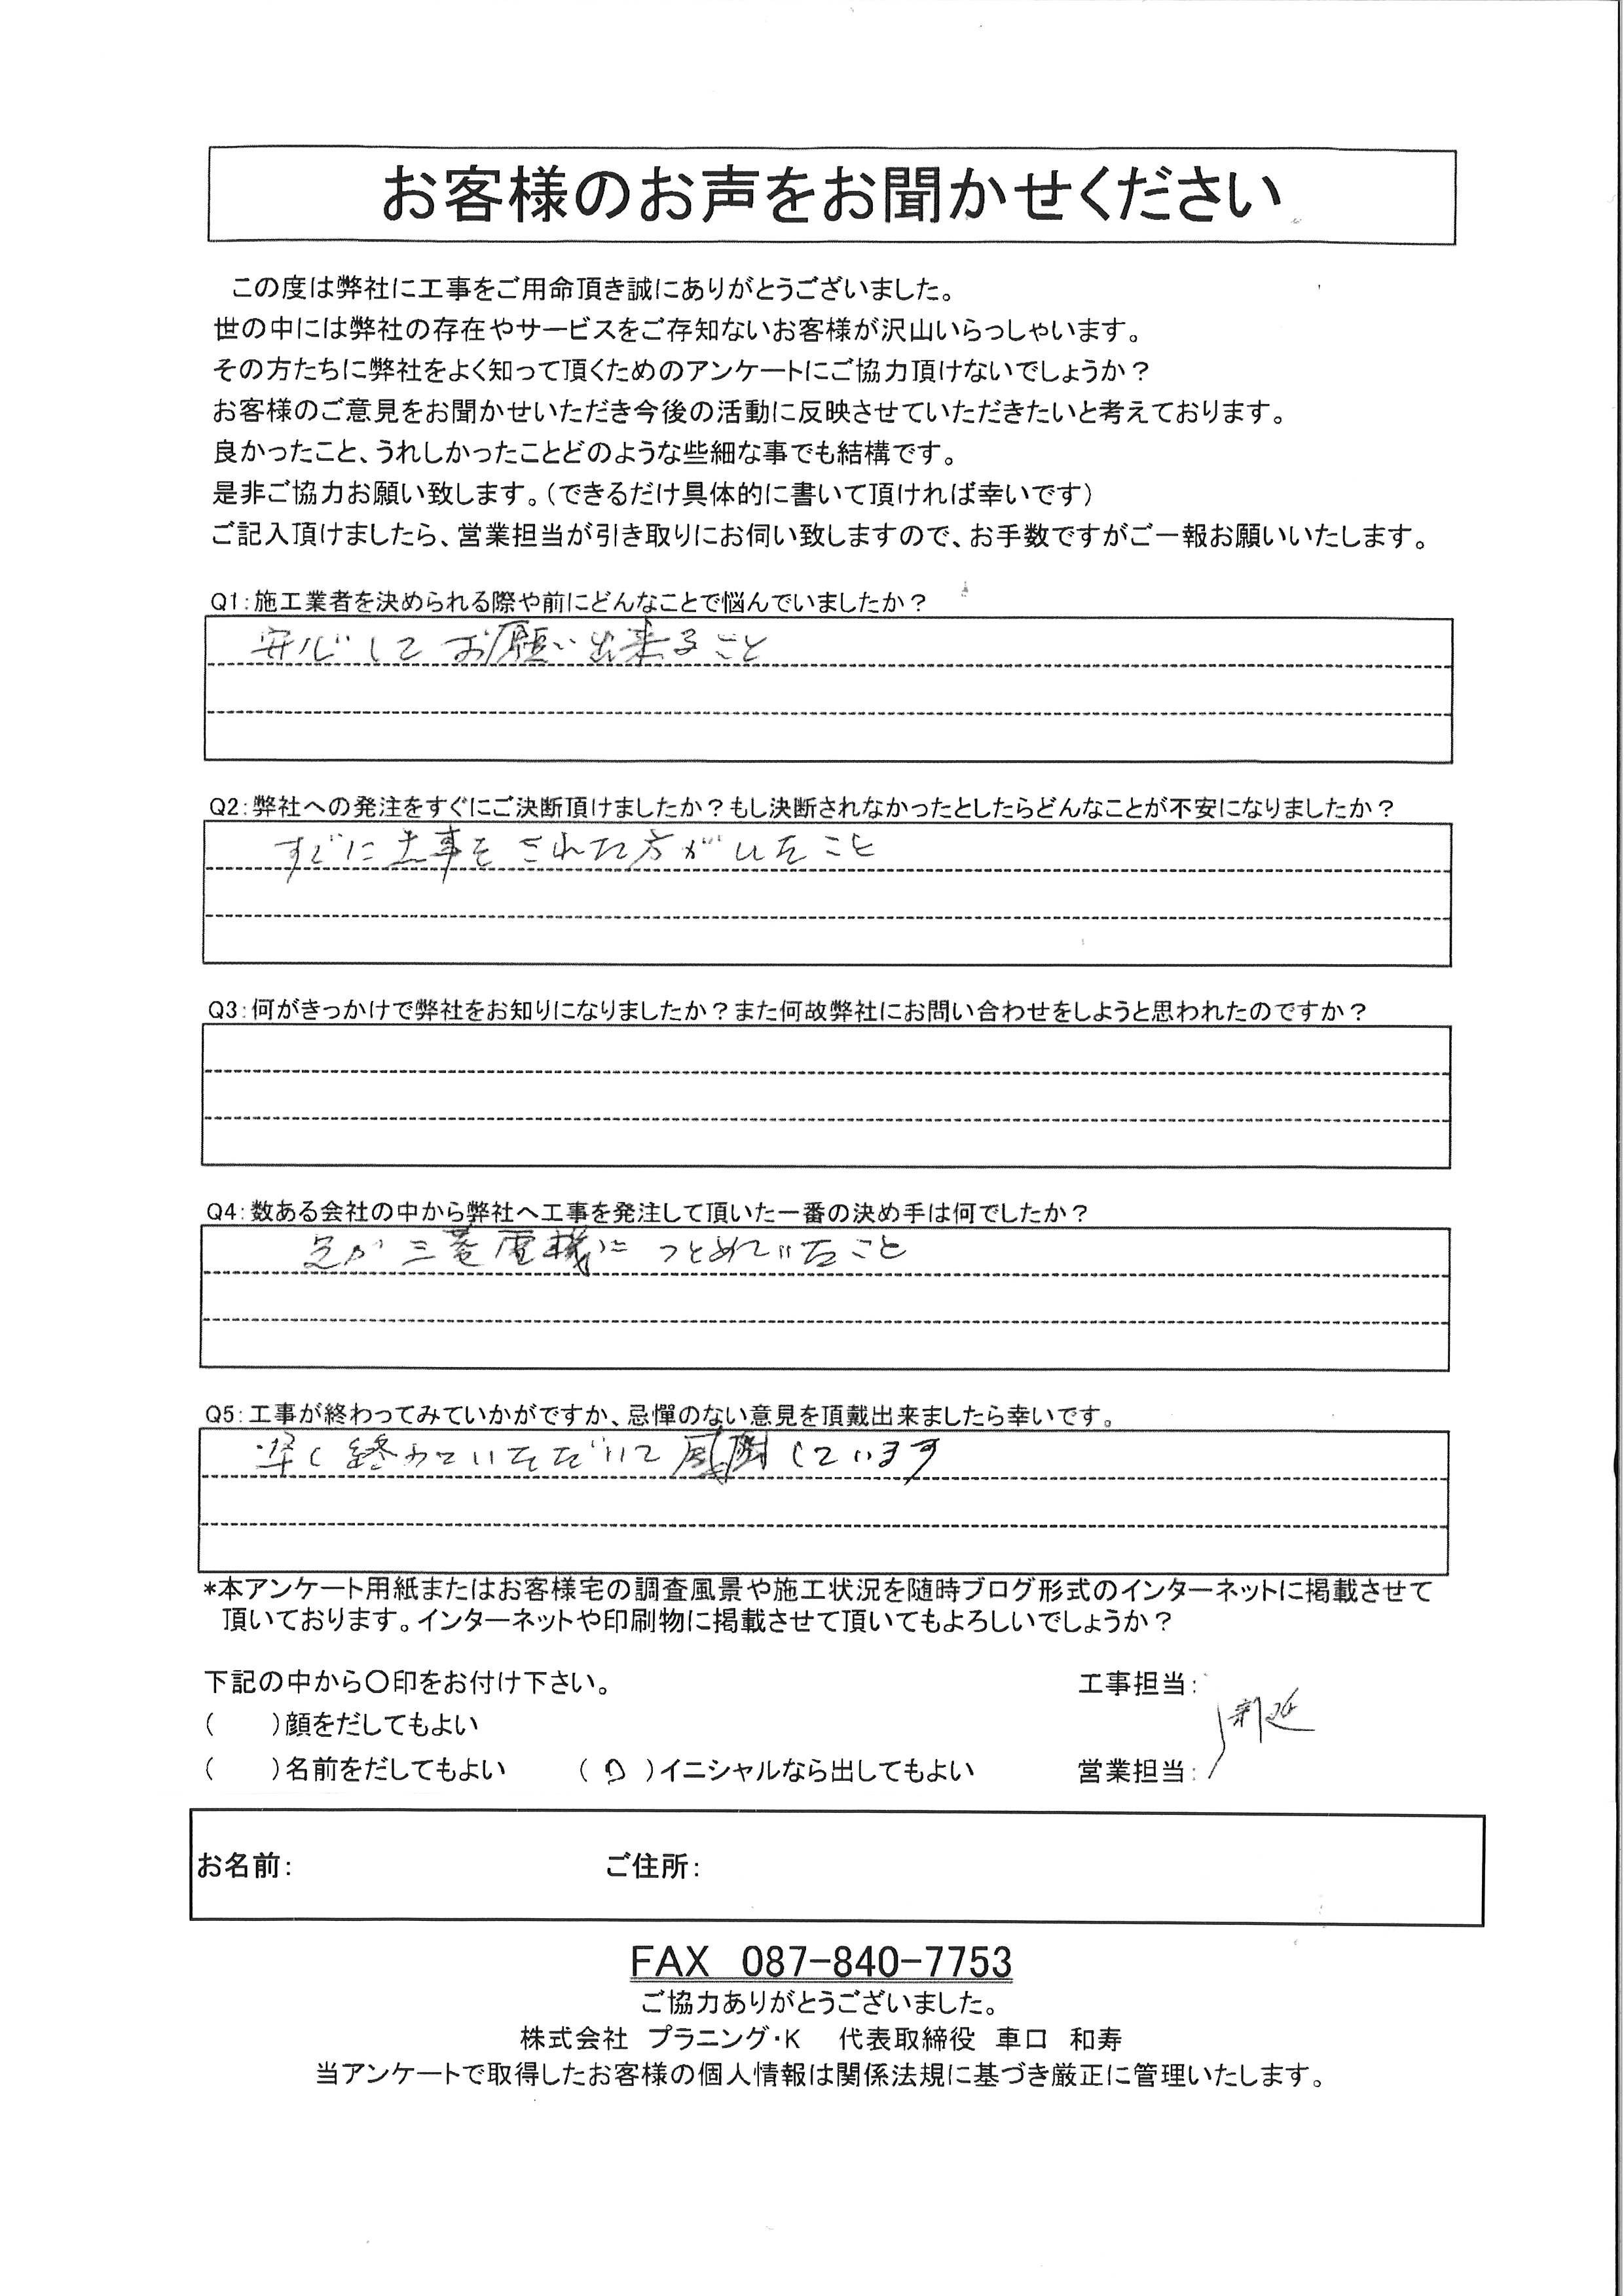 お客様のお声をお聞かせください
この度は弊社に工事をご用命頂き誠にありがとうございました。
世の中には弊社の存在やサービスをご存知ないお客様が沢山いらっしゃいます。
その方たちに弊社をよく知って頂くためのアンケートにご協力頂けないでしょうか？
お客様のご意見をお聞かせいただき今後の活動に反映させていただきたいと考えております。
良かったこと、うれしかったことどのような些細な事でも結構です。
是非ご協力お願い致します。(できるだけ具体的に書いて頂ければ幸いです)
ご記入頂けましたら、営業担当が引き取りにお伺い致しますので、お手数ですがご一報お願いいたします。
Q1:施工業者を決められる際や前にどんなことで悩んでいましたか？
安心してお願い出来ること
Q2:弊社への発注をすぐにご決断頂けましたか？もし決断されなかったとしたらどんなことが不安になりましたか？
すぐに工事をされた方がいたこと
Q3:何がきっかけで弊社をお知りになりましたか？また何故弊社にお問い合わせをしようと思われたのですか？
Q4:数ある会社の中から弊社へ工事を発注して頂いた一番の決め手は何でしたか？
兄が三菱電機につとめていること
Q5:工事が終わってみていかがですか、忌憚のない意見を頂戴出来ましたら幸いです。
早く終わっていただいて感謝しています
*本アンケート用紙またはお客様宅の調査風景や施工状況を随時ブログ形式のインターネットに掲載させて
頂いております。インターネットや印刷物に掲載させて頂いてもよろしいでしょうか？
下記の中から〇印をお付け下さい。 工事担当:
(　　)顔をだしてもよい
新延
(　　)名前をだしてもよい (○)イニシャルなら出してもよい 営業担当:
お名前: ご住所:
FAX 087-840-7753
ご協力ありがとうございました。
株式会社 プラニング・K 代表取締役 車口 和寿
当アンケートで取得したお客様の個人情報は関係法規に基づき厳正に管理いたします。